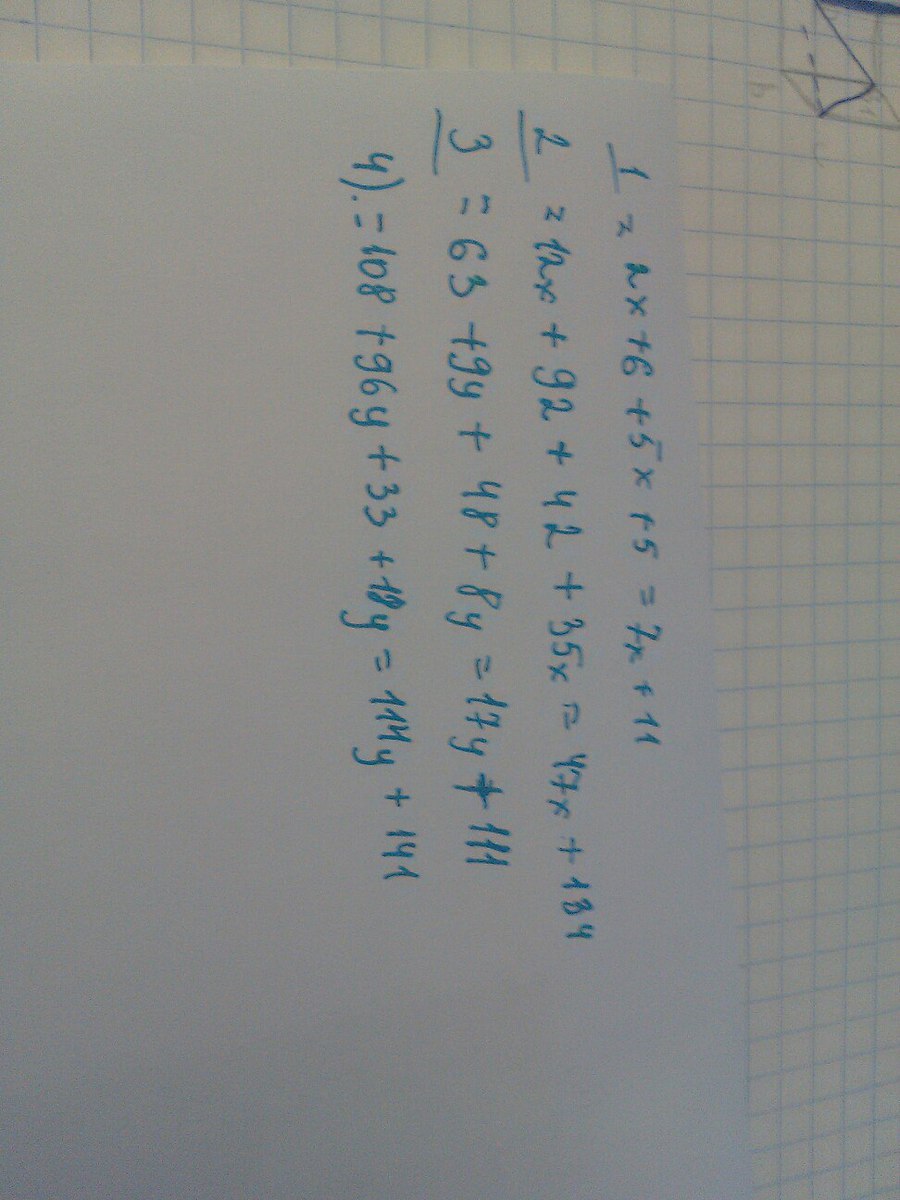 1 = 2x + 6 + 5x + 5 = 7x + 11
2 = 12x + 92 + 42 + 35x = 47x + 134
3 = 63 + 9y + 48 + 8y = 17y + 111
4). = 108 + 96y + 33 + 18y = 114y + 141